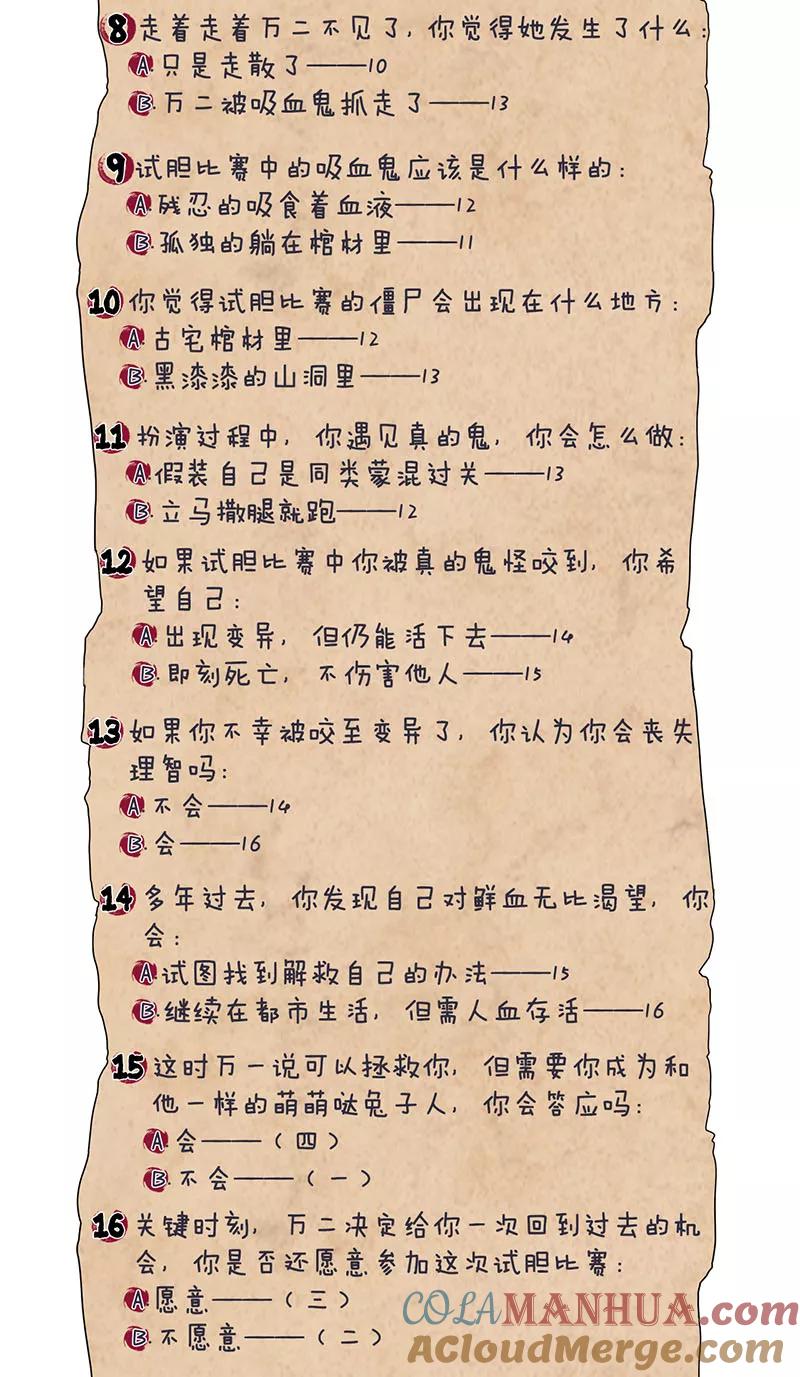 8 走着走着万二不见了，你觉得她发生了什么：
A.只是走散了——10
B.万二被吸血鬼抓走了——13
9 试胆比赛中的吸血鬼应该是什么样的：
A.残忍的吸食着血液——12
B.孤独的躺在棺材里——11
10 你觉得试胆比赛的僵尸会出现在什么地方：
A.古宅棺材里——12
B.黑漆漆的山洞里——13
11 扮演过程中，你遇见真的鬼，你会怎么做：
A.假装自己是同类蒙混过关——13
B.立马撒腿就跑——12
12 如果试胆比赛中你被真的鬼怪咬到，你希
望自己：
A.出现变异，但仍能活下去——14
B.即刻死亡，不伤害他人——15
13 如果你不幸被咬至变异了，你认为你会丧失
理智吗：
A.不会——14
B.会——16
14 多年过去，你发现自己对鲜血无比渴望，你
会：
A.试图找到解救自己的办法——15
B.继续在都市生活，但需人血存活——16
15 这时万一说可以拯救你，但需要你成为和
他一样的萌萌哒兔子人，你会答应吗：
A.会——（四）
B.不会——（一）
16 关键时刻，万二决定给你一次回到过去的机
会，你是否还愿意参加这次试胆比赛：
A.愿意——（三）
B.不愿意——（二）
COLAMANHUA.com
ACloudMerge.com